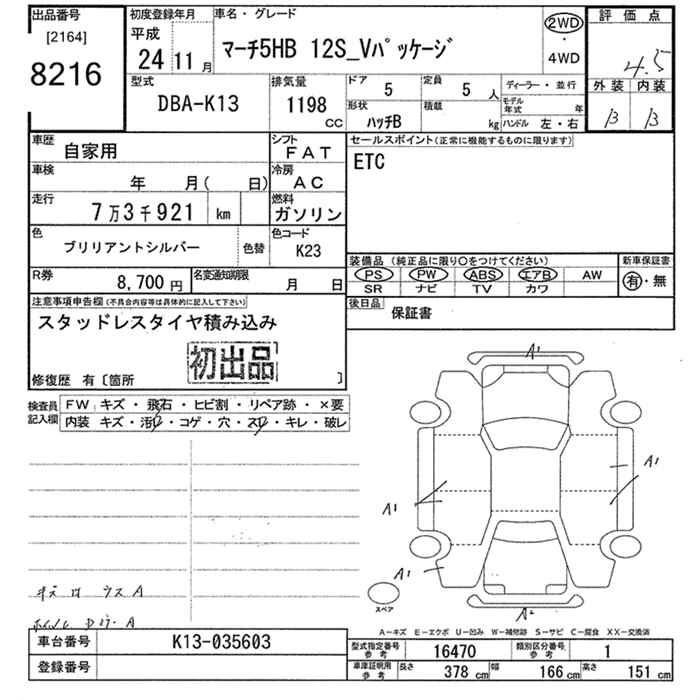 出品番号
[2164]
8216
初度登録年月
平成
24 11 月
車名・グレード
マーチ5HB 12S_Vパッケージ
2WD
・
4WD
評価点
4.5
外装 内装
B B
型式
DBA-K13
排気量
1198
CC
ドア
5
定員
5 人
形状
ハッチB
積載
kg
ディーラー・並行
モデル年式 年
ハンドル 左・右
車歴
自家用
シフト
FAT
車検
年 月( 日)
冷房
AC
走行
7万3千921 km
燃料
ガソリン
色
ブリリアントシルバー
色替
色コード
K23
R券
8,700 円
名変通知期限
月 日
セールスポイント(正常に機能するものに限ります)
ETC
装備品 (純正品に限り○をつけてください)
PS PW ABS エアB AW
SR ナビ TV カワ
新車保証書
有・無
後日品
保証書
注意事項申告欄(不具合内容等は具体的に記入して下さい)
スタッドレスタイヤ積み込み
初出品
修復歴 有〔箇所 〕
検査員記入欄
FW キズ・飛石・ヒビ割・リペア跡・×要
内装 キズ・汚レ・コゲ・穴・スレ・キレ・破レ
A1
A1
A1
A1
A2
スペア
キズ ウス A
A
A-キズ E-エクボ U-凹み W-補修跡 S-サビ C-腐食 XX-交換済
車台番号
K13-035603
登録番号
型式指定番号 参考
16470
類別区分番号 参考
1
車庫証明用 参考
長さ 378 cm 幅 166 cm 高さ 151 cm